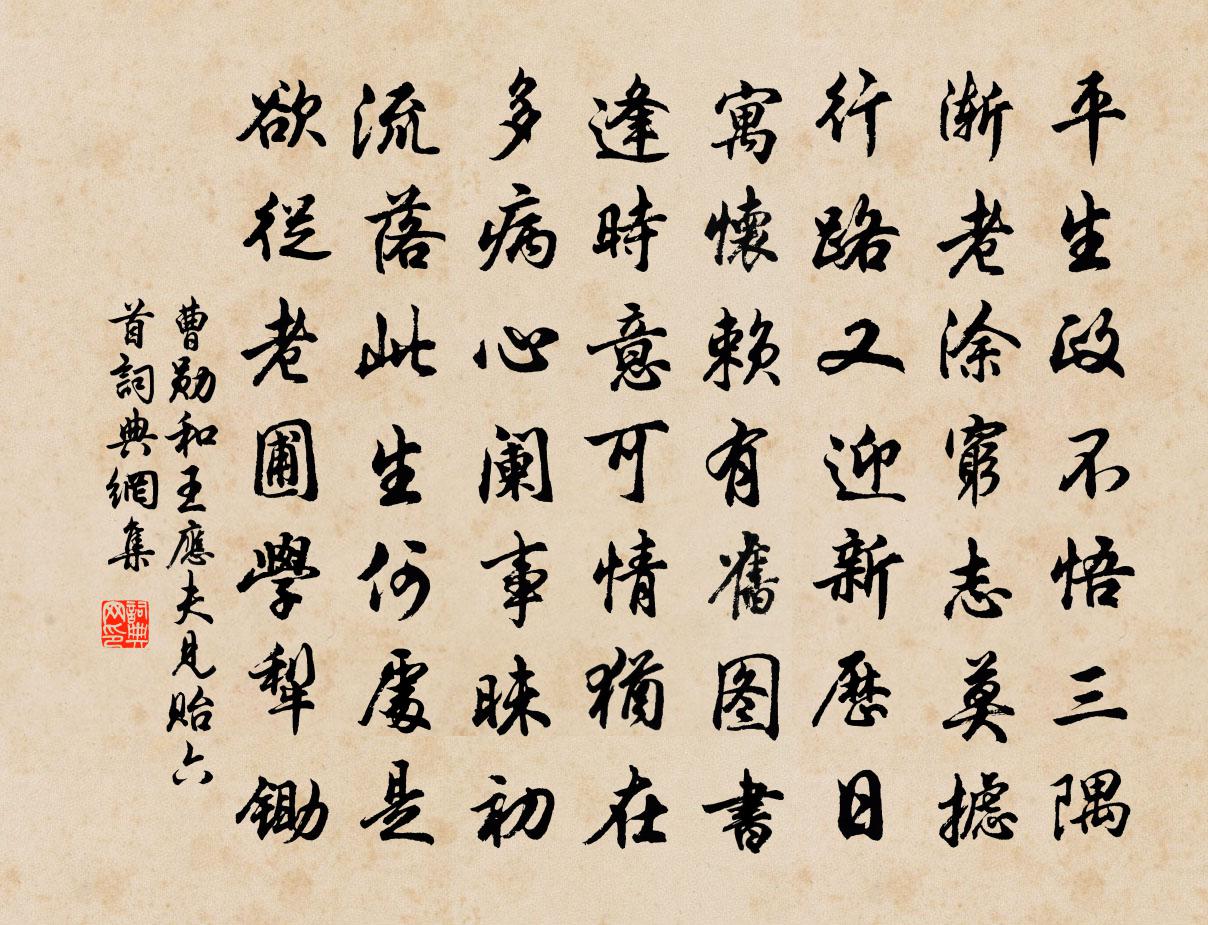 平生政不悟三隅
漸老涂窮志莫攄
行路又迎新歷日
寓懷賴有舊图書
逢時意可情猶在
多病心阑事昧初
流落此生何處是
欲從老圃學犁鋤
曹勛和王應夫見貽六
首詞典網集
詞典网印